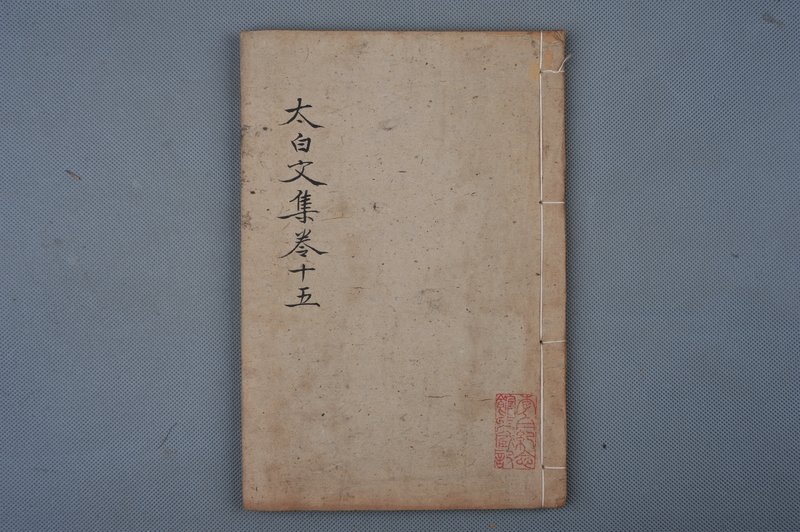 太白文集卷十五